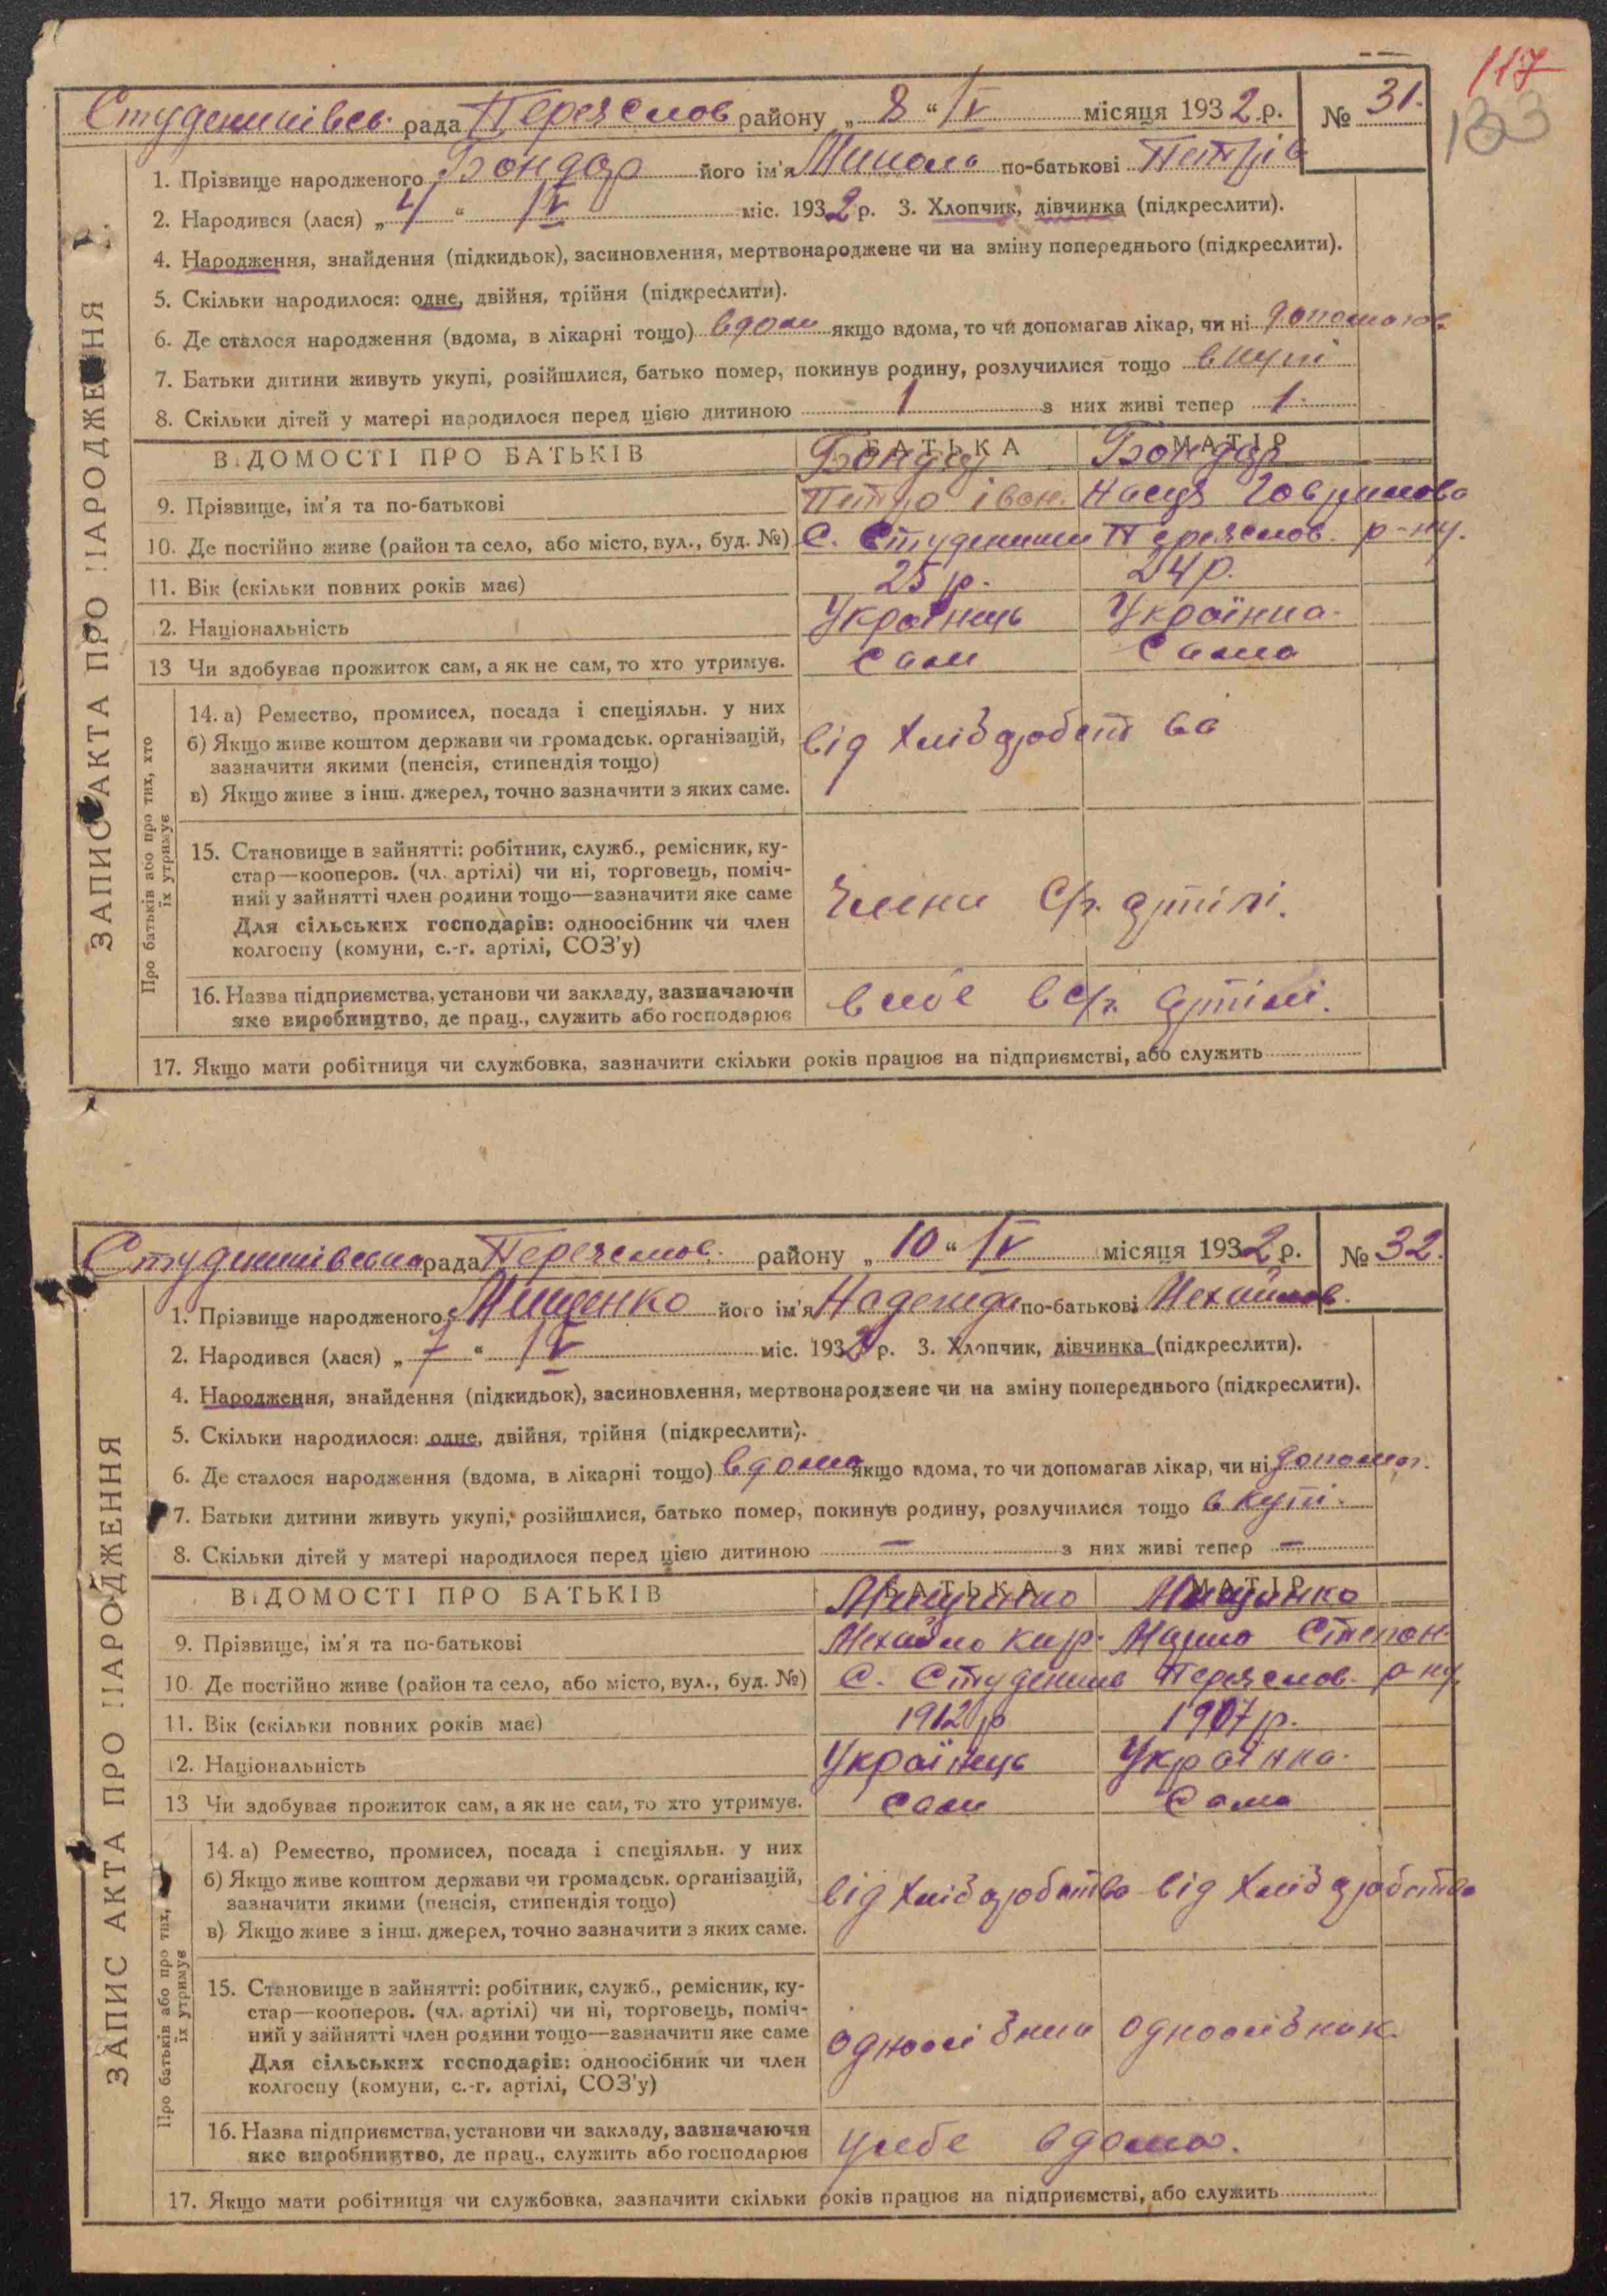 117
133
Студениківсь. рада Переяслов району „ 8 “ IV місяця 1932 р. № 31.
1. Прізвище народженого Бондар його ім'я Микола по-батькові Петрів
2. Народився (лася) „ 4 “ IV міс. 1932 р. 3. Хлопчик, дівчинка (підкреслити).
4. Народження, знайдення (підкидьок), засиновлення, мертвонароджене чи на зміну попереднього (підкреслити).
5. Скільки народилося: одне, двійня, трійня (підкреслити).
6. Де сталося народження (вдома, в лікарні тощо) вдома якщо вдома, то чи допомагав лікар, чи ні допомогов.
7. Батьки дитини живуть укупі, розійшлися, батько помер, покинув родину, розлучилися тощо вкупі
8. Скільки дітей у матері народилося перед цією дитиною 1 з них живі тепер 1.
ЗАПИС АКТА ПРО НАРОДЖЕННЯ
ВІДОМОСТІ ПРО БАТЬКІВ БАТЬКА МАТІР
Бондар Бондар
9. Прізвище, ім'я та по-батькові Петро іван. Настя Гаврилова
10. Де постійно живе (район та село, або місто, вул., буд. №) С. Студеники Переяслов. р-ну.
11. Вік (скільки повних років має) 25 р. 24 р.
12. Національність Українець Українка.
13 Чи здобував прожиток сам, а як не сам, то хто утримує. Сам Сама
Про батьків або про тих, хто їх утримує
14. а) Ремество, промисел, посада і спеціяльн. у них
б) Якщо живе коштом держави чи громадськ. організацій,
зазначити якими (пенсія, стипендія тощо)
в) Якщо живе з інш. джерел, точно зазначити з яких саме.
від хлібаробст ва
15. Становище в зайнятті: робітник, служб., ремісник, ку-
стар—кооперов. (чл. артілі) чи ні, торговець, поміч-
ний у зайнятті член родини тощо—зазначити яке саме
Для сільських господарів: одноосібник чи член
колгоспу (комуни, с.-г. артілі, СОЗ'у)
Члени С/г. артілі.
16. Назва підприємства, установи чи закладу, зазначаючи
яке виробництво, де прац., служить або господарює
в с/г. артілі.
17. Якщо мати робітниця чи службовка, зазначити скільки років працює на підприємстві, або служить
Студениківська рада Переяслов. району „ 10 “ IV місяця 1932 р. № 32.
1. Прізвище народженого Мищенко його ім'я Надежда по-батькові Михайлов.
2. Народився (лася) „ 7 “ IV міс. 1932 р. 3. Хлопчик, дівчинка (підкреслити).
4. Народження, знайдення (підкидьок), засиновлення, мертвонароджене чи на зміну попереднього (підкреслити).
5. Скільки народилося: одне, двійня, трійня (підкреслити).
6. Де сталося народження (вдома, в лікарні тощо) вдома якщо вдома, то чи допомагав лікар, чи ні допомог.
7. Батьки дитини живуть укупі, розійшлися, батько помер, покинув родину, розлучилися тощо в купі.
8. Скільки дітей у матері народилося перед цією дитиною — з них живі тепер —
ЗАПИС АКТА ПРО НАРОДЖЕННЯ
ВІДОМОСТІ ПРО БАТЬКІВ БАТЬКА МАТІР
Мищенко Мищенко
9. Прізвище, ім'я та по-батькові Михайло Кир. Мария Степан.
10. Де постійно живе (район та село, або місто, вул., буд. №) С. Студеники Переяслов. р-ну.
11. Вік (скільки повних років має) 1912 р 1907 р.
12. Національність Українець Українка.
13 Чи здобував прожиток сам, а як не сам, то хто утримує. Сам Сама
Про батьків або про тих, їх утримує
14. а) Ремество, промисел, посада і спеціяльн. у них
б) Якщо живе коштом держави чи громадськ. організацій,
зазначити якими (пенсія, стипендія тощо)
в) Якщо живе з інш. джерел, точно зазначити з яких саме.
від хлібаробства від хлібаробства
15. Становище в зайнятті: робітник, служб., ремісник, ку-
стар—кооперов. (чл. артілі) чи ні, торговець, поміч-
ний у зайнятті член родини тощо—зазначити яке саме
Для сільських господарів: одноосібник чи член
колгоспу (комуни, с.-г. артілі, СОЗ'у)
одноосібник одноосібник.
16. Назва підприємства, установи чи закладу, зазначаючи
яке виробництво, де прац., служить або господарює
у себе вдома.
17. Якщо мати робітниця чи службовка, зазначити скільки років працює на підприємстві, або служить